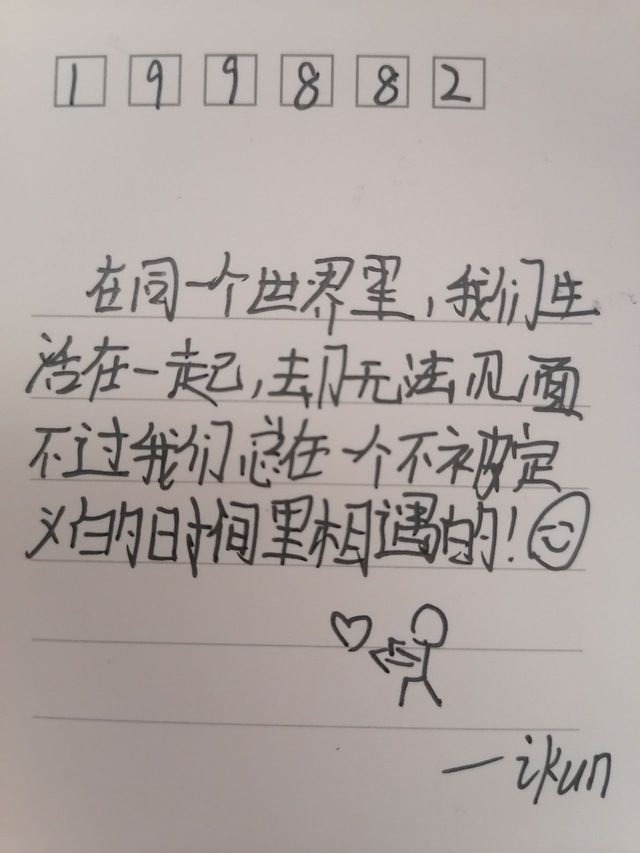 199882
在同一个世界里,我们生
活在一起,却无法见面
不过我们总在一个不被定
义的时间里相遇的!
—ikun